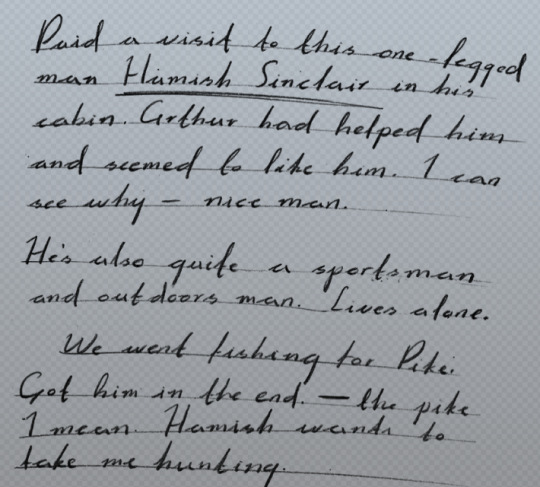 Paid a visit to this one-legged
man Hamish Sinclair in his
cabin. Arthur had helped him
and seemed to like him. I can
see why – nice man.
He's also quite a sportsman
and outdoors man. Lives alone.
We went fishing for Pike.
Got him in the end. – the pike
I mean. Hamish wants to
take me hunting.